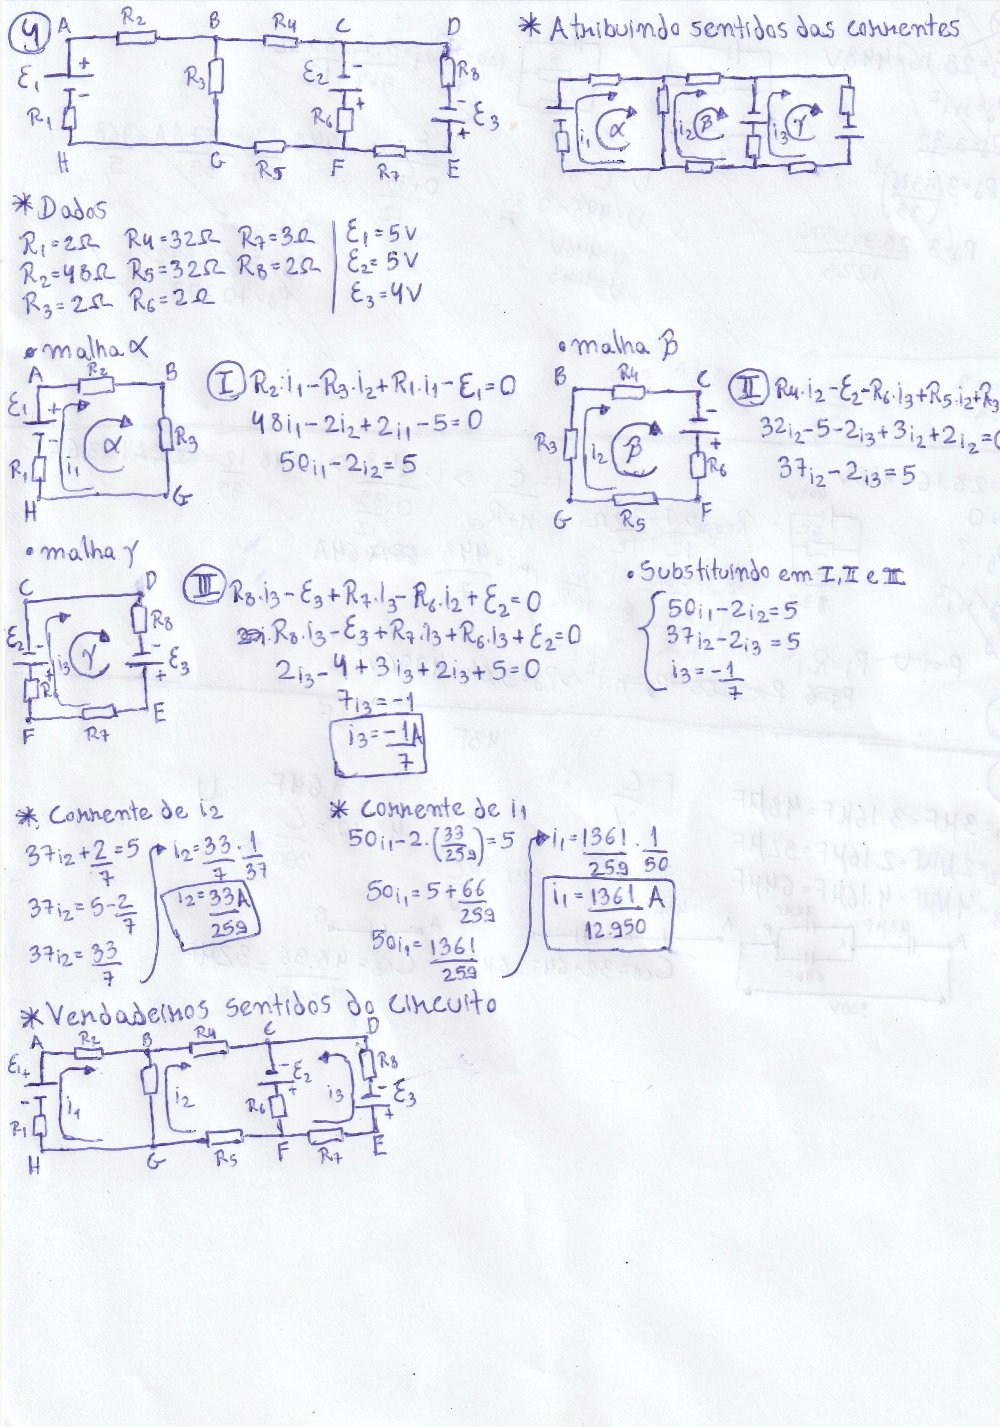 4
A R₂ B R₄ C D
ε₁ + - R₃ ε₂ - + R₈ - ε₃ +
R₁ R₆
H G R₅ F R₇ E
* Atribuindo sentidos das correntes
i₁ α i₂ β i₃ γ
* Dados
R₁=2Ω R₄=32Ω R₇=3Ω ε₁=5V
R₂=48Ω R₅=32Ω R₈=2Ω ε₂=5V
R₃=2Ω R₆=2Ω ε₃=4V
• malha α
A R₂ B
ε₁ + - i₁ α R₃
R₁
H G
I R₂.i₁-R₃.i₂+R₁.i₁-ε₁=0
48i₁-2i₂+2i₁-5=0
50i₁-2i₂=5
• malha β
B R₄ C
R₃ i₂ β - + R₆
G R₅ F
II R₄.i₂-ε₂-R₆.i₃+R₅.i₂+R₃
32i₂-5-2i₃+3i₂+2i₂=0
37i₂-2i₃=5
• malha γ
C D
ε₂ - + i₃ γ R₈ - ε₃ +
R
F R₇ E
III R₈.i₃-ε₃+R₇.i₃-R₆.i₂+ε₂=0
R₈.i₃-ε₃+R₇.i₃+R₆.i₃+ε₂=0
2i₃-4+3i₃+2i₃+5=0
7i₃=-1
i₃=-1/7 A
• Substituindo em I, II e III
50i₁-2i₂=5
37i₂-2i₃=5
i₃=-1/7
* Corrente de i₂
37i₂+2/7=5
37i₂=5-2/7
37i₂=33/7
i₂=33/7 . 1/37
i₂=33/259 A
* Corrente de i₁
50i₁-2.(33/259)=5
50i₁=5+66/259
50i₁=1361/259
i₁=1361/259 . 1/50
i₁=1361/12.950 A
* Verdadeiros sentidos do circuito
A R₂ B R₄ C D
ε₁ + - i₁ i₂ - ε₂ + i₃ R₈ - ε₃ +
R₁ R₆
H G R₅ F R₇ E